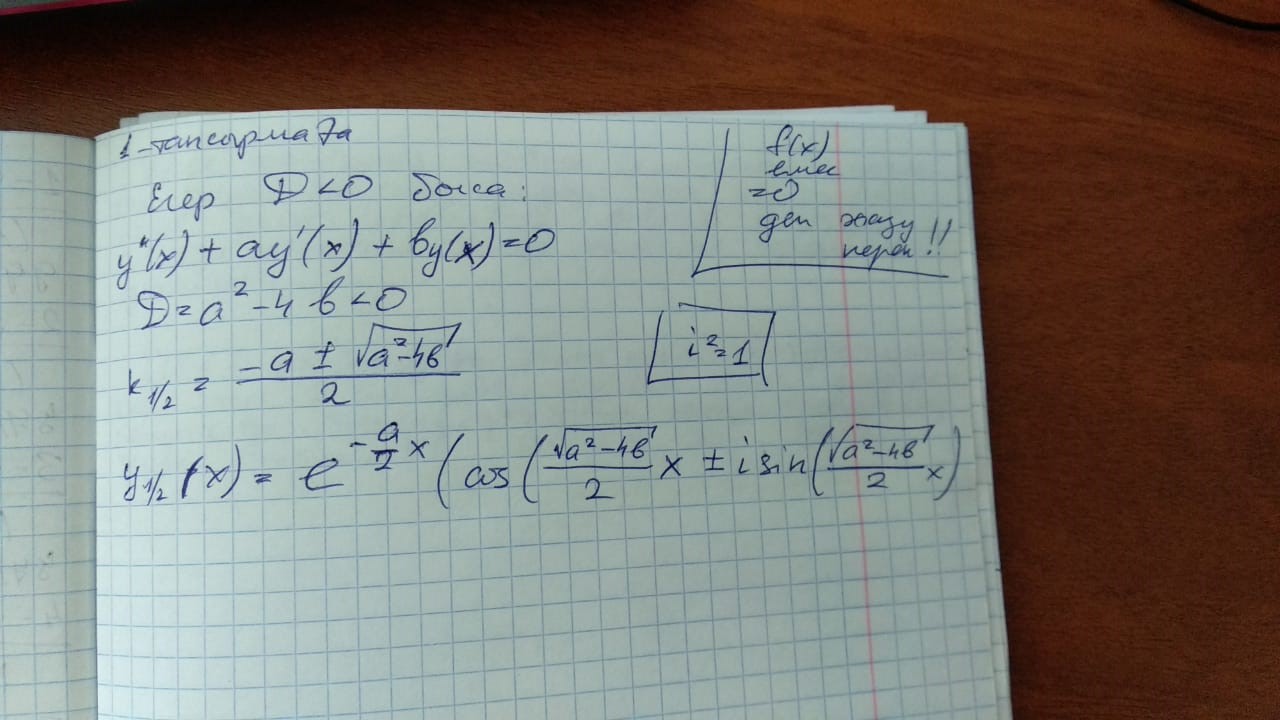 1-тапсырмаға
Егер D<0 болса:
y''(x) + ay'(x) + by(x)=0
D=a²-4b<0
k₁/₂ = (-a ± √(a²-4b)) / 2
y₁/₂(x) = e^(-a/2 x) (cos(√(a²-4b)/2 x ± i sin(√(a²-4b)/2 x)
f(x)
емес
=0
деп жазу
керек!!
i²=1